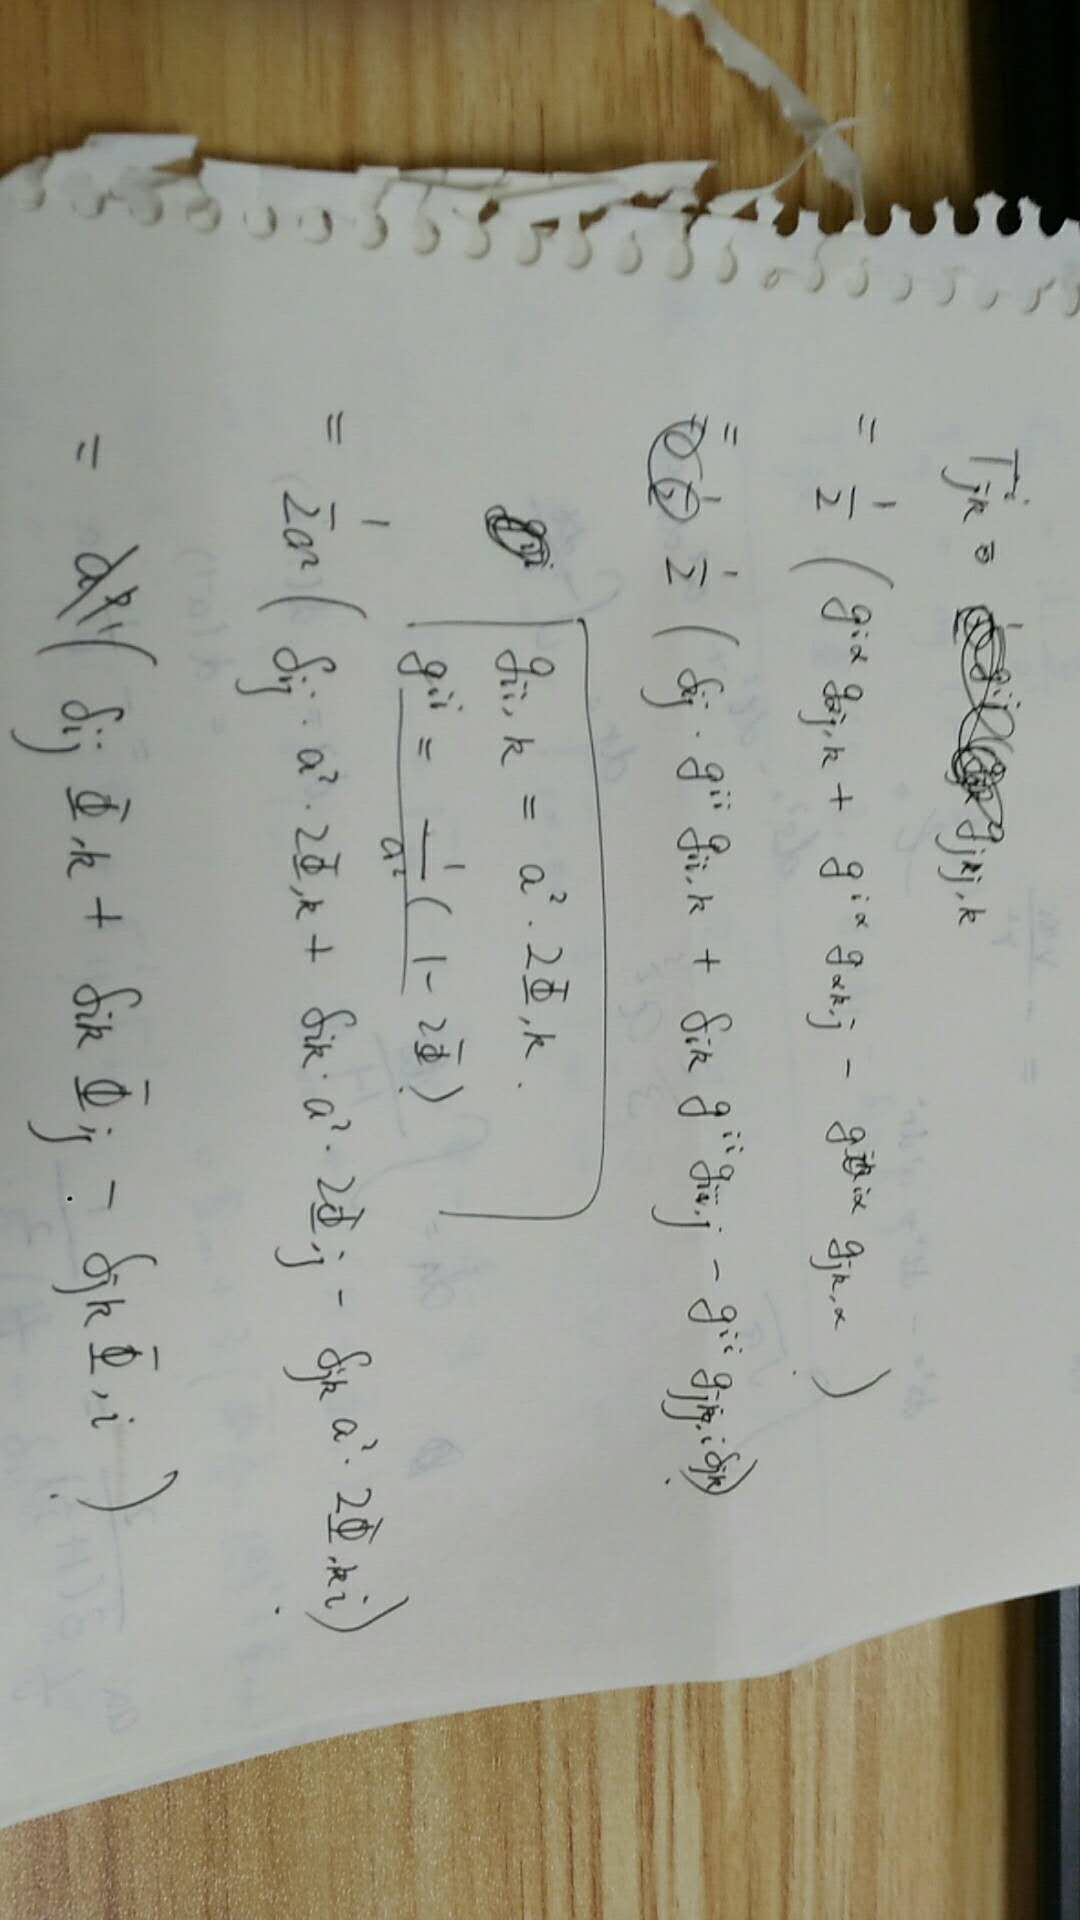 Γ^i_{jk} = g_{jkj,k}
= 1/2 ( g^{iα} g_{αj,k} + g^{iα} g_{αk,j} - g^{iα} g_{jk,α} )
= 1/2 ( δ_{ij} · g^{ii} g_{ii,k} + δ_{ik} g^{ii} g_{ii,j} - g^{ii} g_{jj,i} δ_{jk} )
g_{ii,k} = a² · 2Φ,k .
g^{ii} = 1/a² ( 1 - 2Φ )
= 1/2a² ( δ_{ij} · a² · 2Φ,k + δ_{ik} · a² · 2Φ,j - δ_{jk} a² · 2Φ,i )
= ( δ_{ij} Φ,k + δ_{ik} Φ,j - δ_{jk} Φ,i )